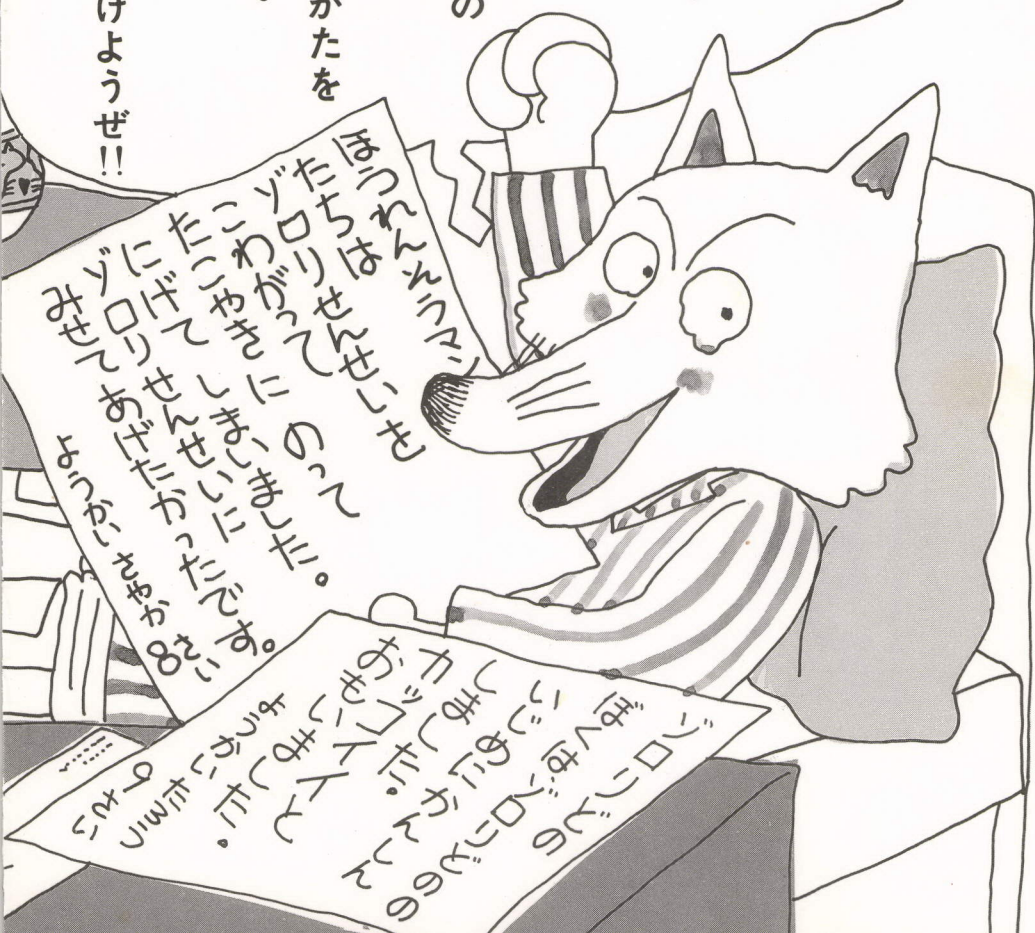 の
かたを
けようぜ!!
ほうれんそうマン
たちは
ゾロリせんせいを
こわがって
たこやきに のって
にげて しまいました。
ゾロリせんせいに
みせてあげたかったです。
ようかい さやか 8さい
ゾロリどの
ぼくはゾロリどのの
いじめにかんしん
しました。
カッコイイと
おもいました。
ようかいたろう
9さい